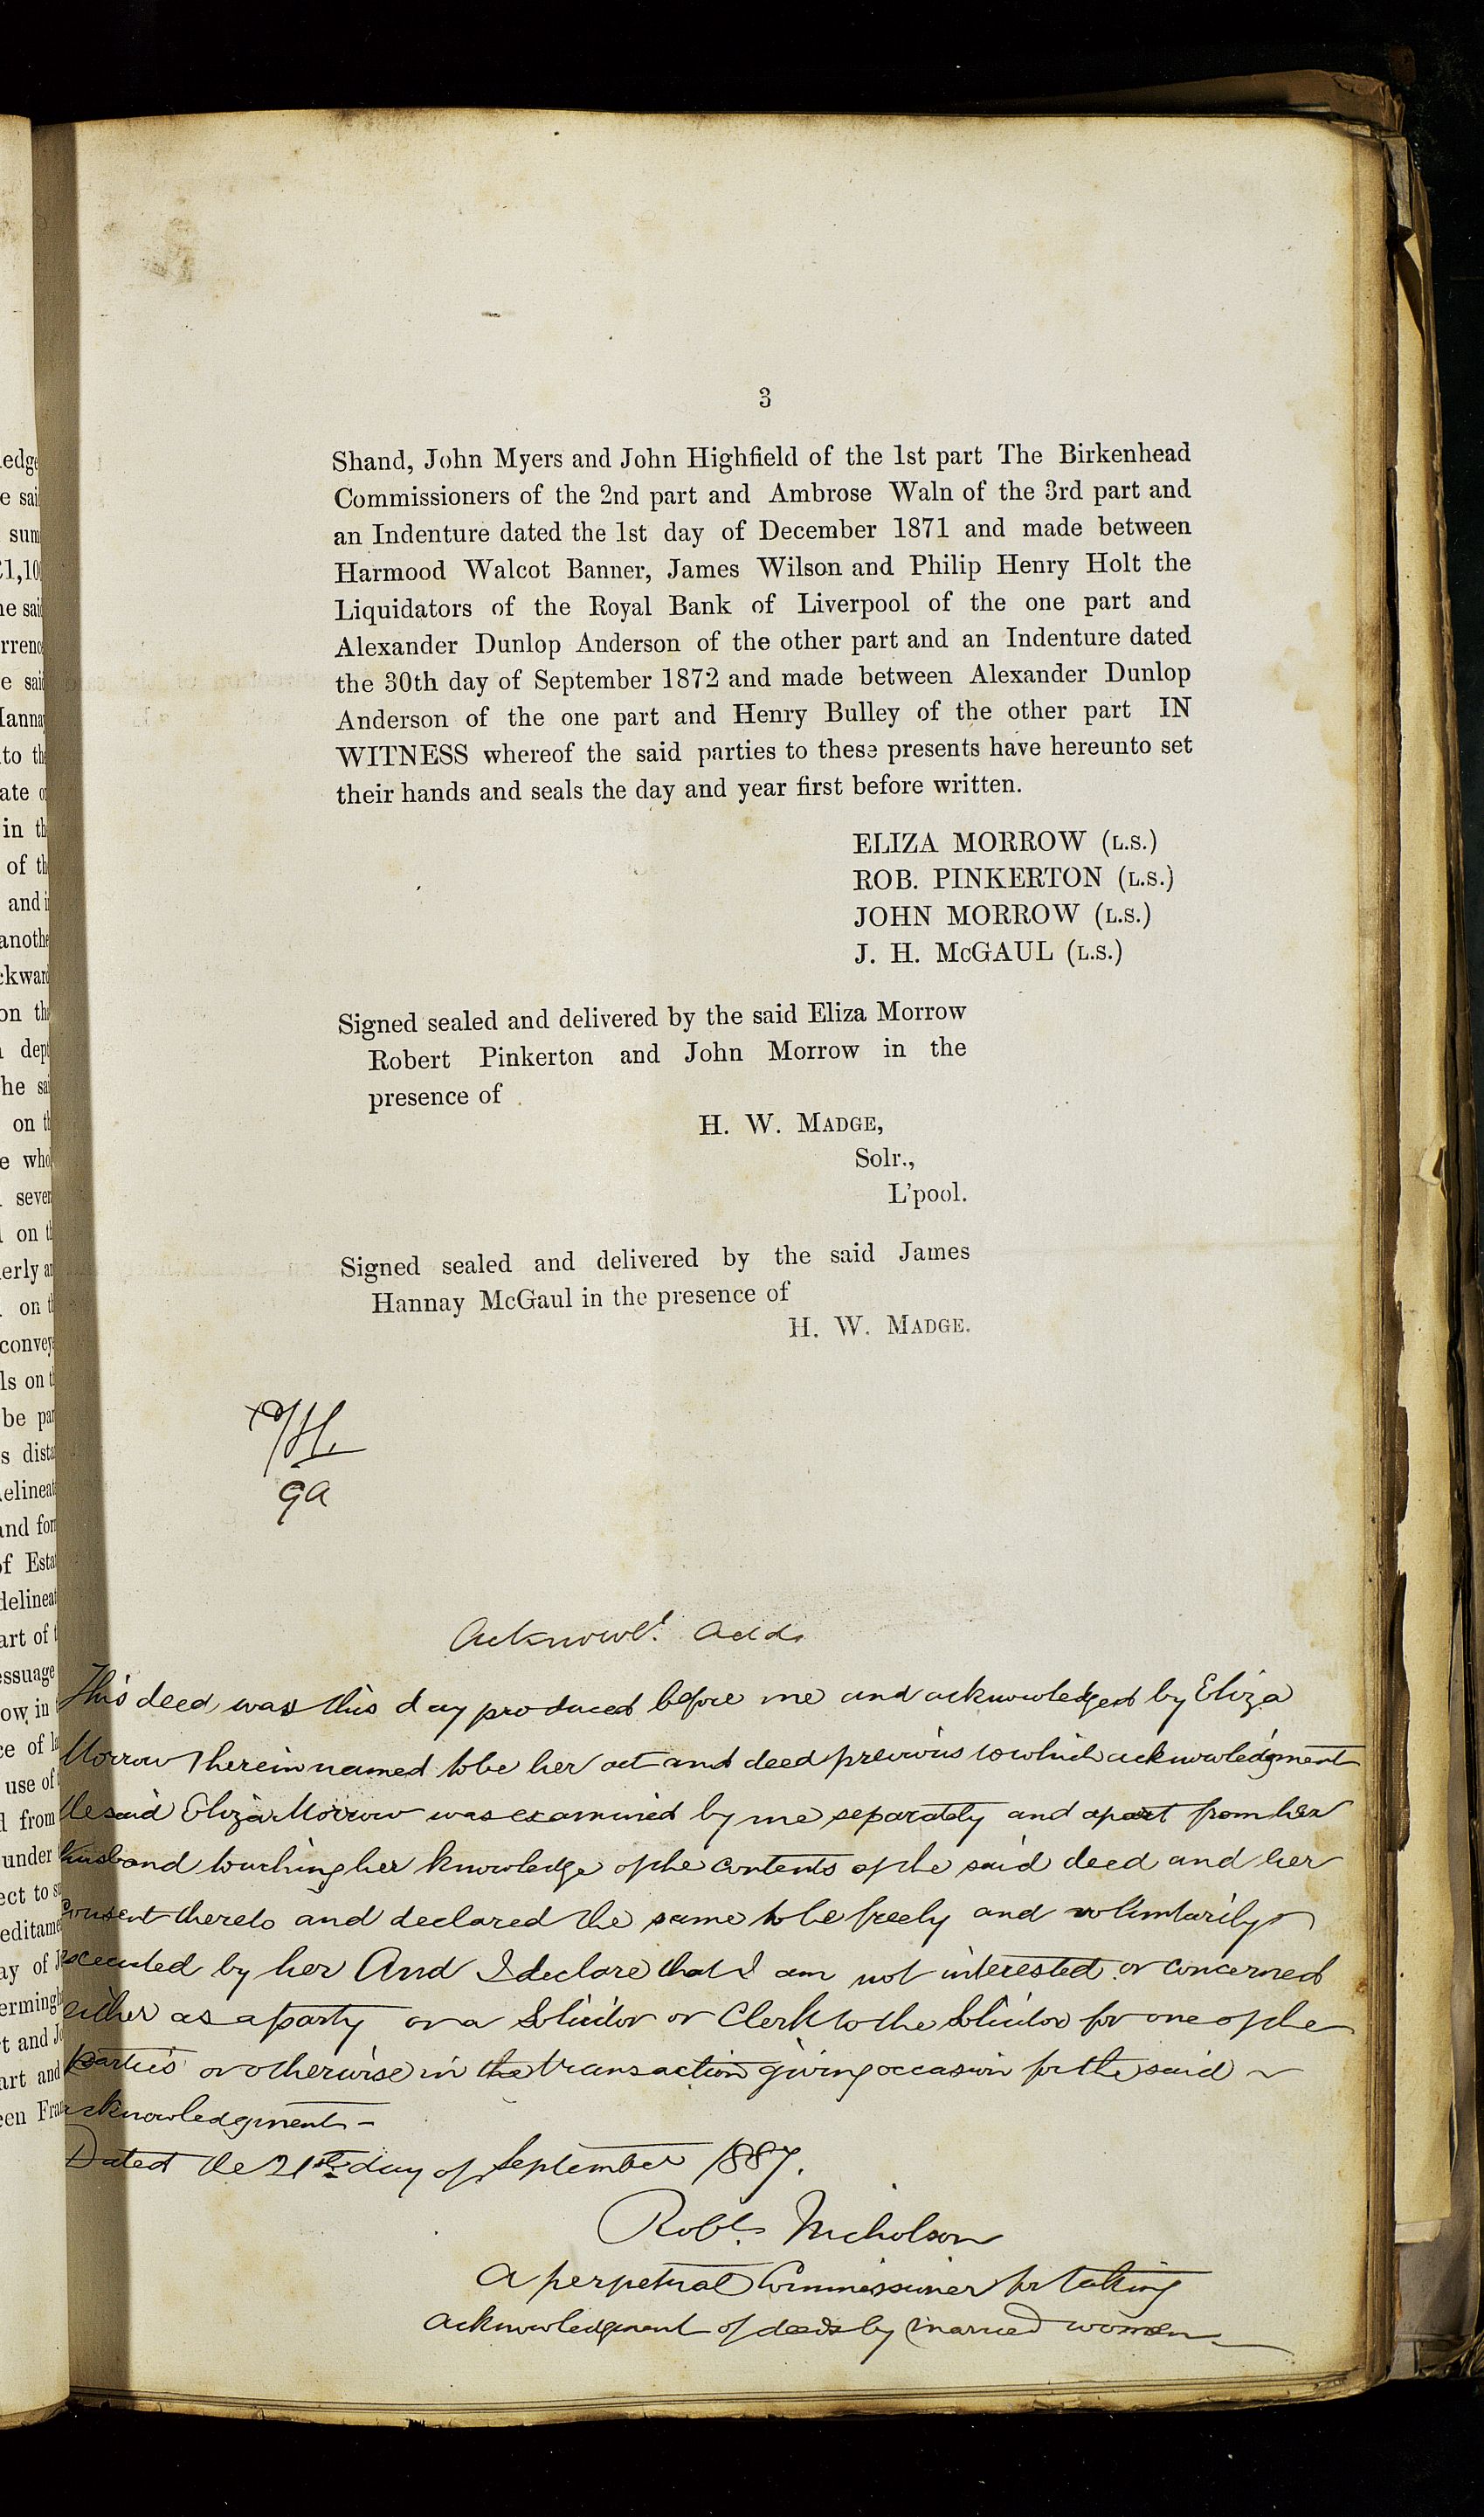 3
Shand, John Myers and John Highfield of the 1st part The Birkenhead
Commissioners of the 2nd part and Ambrose Waln of the 3rd part and
an Indenture dated the 1st day of December 1871 and made between
Harmood Walcot Banner, James Wilson and Philip Henry Holt the
Liquidators of the Royal Bank of Liverpool of the one part and
Alexander Dunlop Anderson of the other part and an Indenture dated
the 30th day of September 1872 and made between Alexander Dunlop
Anderson of the one part and Henry Bulley of the other part IN
WITNESS whereof the said parties to these presents have hereunto set
their hands and seals the day and year first before written.
ELIZA MORROW (L.S.)
ROB. PINKERTON (L.S.)
JOHN MORROW (L.S.)
J. H. McGAUL (L.S.)
Signed sealed and delivered by the said Eliza Morrow
Robert Pinkerton and John Morrow in the
presence of
H. W. MADGE,
Solr.,
L'pool.
Signed sealed and delivered by the said James
Hannay McGaul in the presence of
H. W. MADGE.
This deed was this day produced before me and acknowledged by Eliza
Morrow therein named to be her act and deed previous to which acknowledgment
the said Eliza Morrow was examined by me separately and apart from her
husband touching her knowledge of the contents of the said deed and her
consent thereto and declared the same to be freely and voluntarily
executed by her And I declare that I am not interested or concerned
either as a party or a Solicitor or Clerk to the Solicitor for one of the
parties or otherwise in the transaction giving occasion for the said
acknowledgment -
Dated the 21st day of September 1887.
Robt. Nicholson
A perpetual Commissioner for taking
acknowledgment of deeds by married women